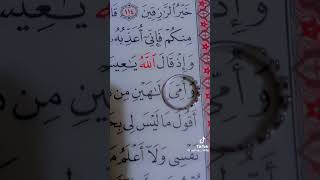 خَيْرُ ٱلرَّٰزِقِينَ ١١٤ قَا
مِنكُمْ فَإِنِّىٓ أُعَذِّبُهُۥ
وَإِذْ قَالَ ٱللَّهُ يَٰعِيسَ
وَأُمِّىَ إِلَٰهَيْنِ مِن د
أَقُولَ مَا لَيْسَ لِى بِحَ
نَفْسِى وَلَآ أَعْلَمُ م
TikTok